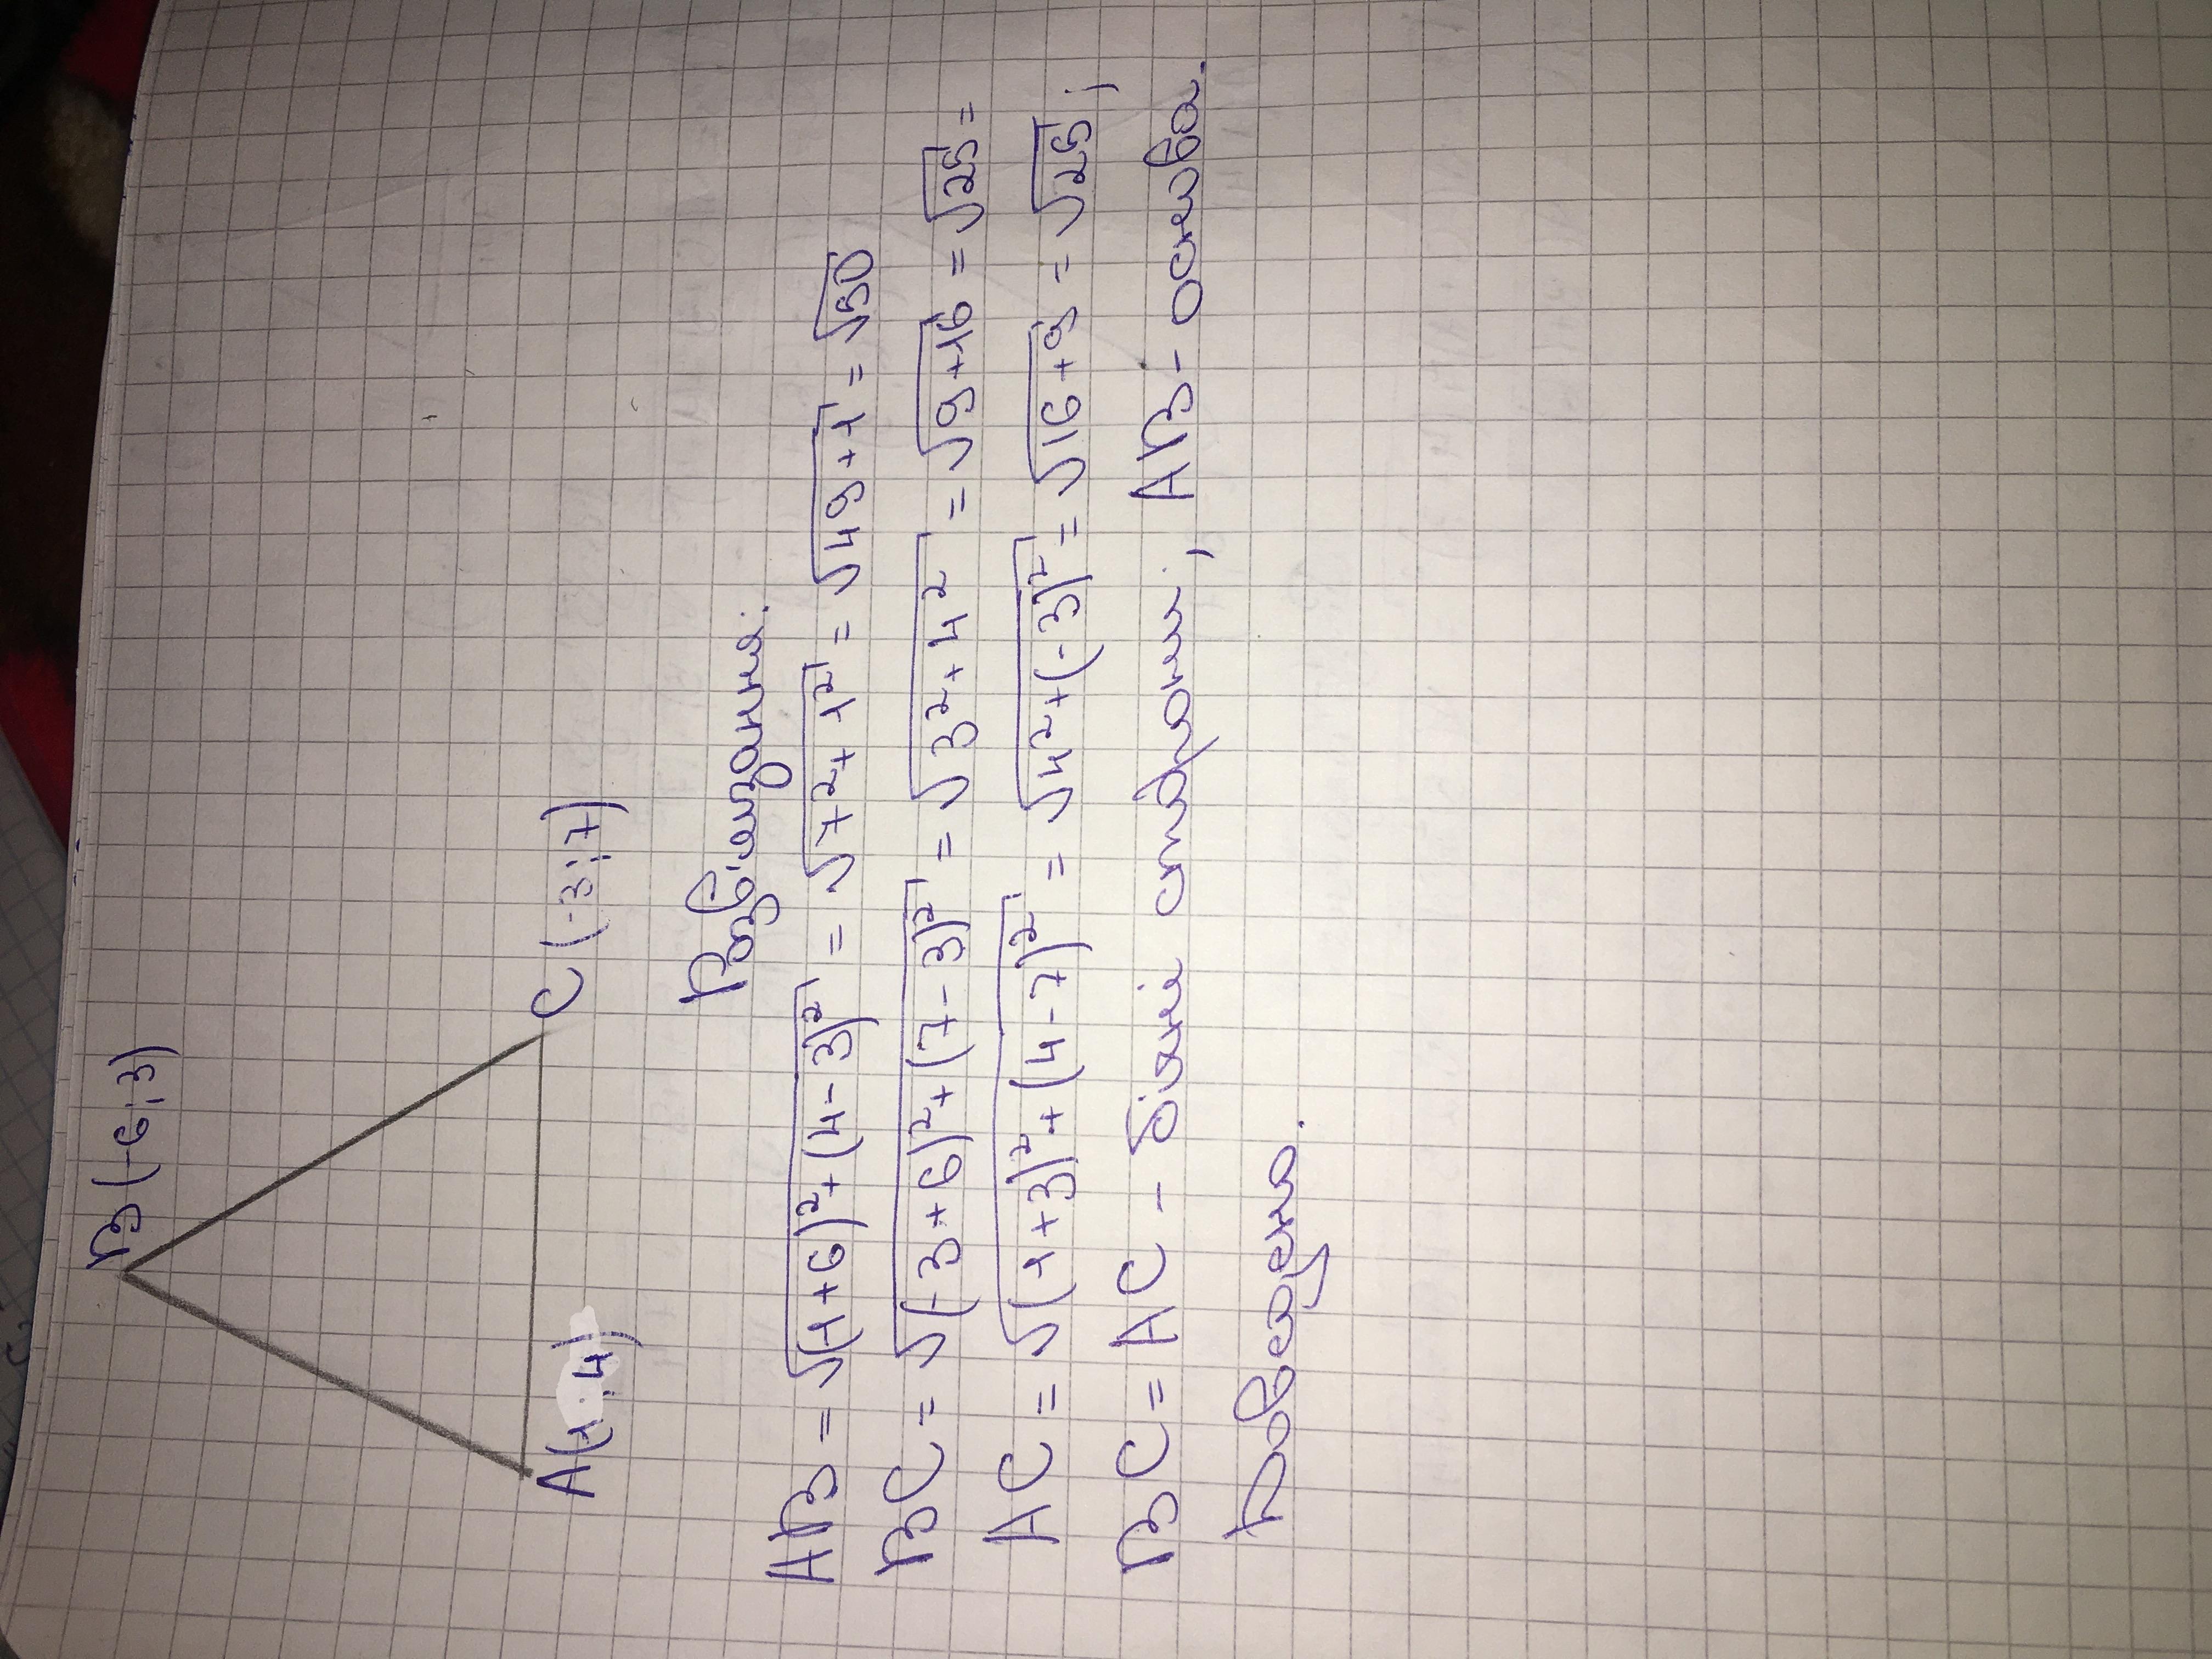 B(-6;3)
A(1;4)
C(-3;7)
Розв'язання:
AB = √(1+6)²+(4-3)² = √7²+1² = √49+1 = √50
BC = √(-3+6)²+(7-3)² = √3²+4² = √9+16 = √25 =
AC = √(1+3)²+(4-7)² = √4²+(-3)² = √16+9 = √25;
BC = AC - бічні сторони; AB - основа.
Доведено.